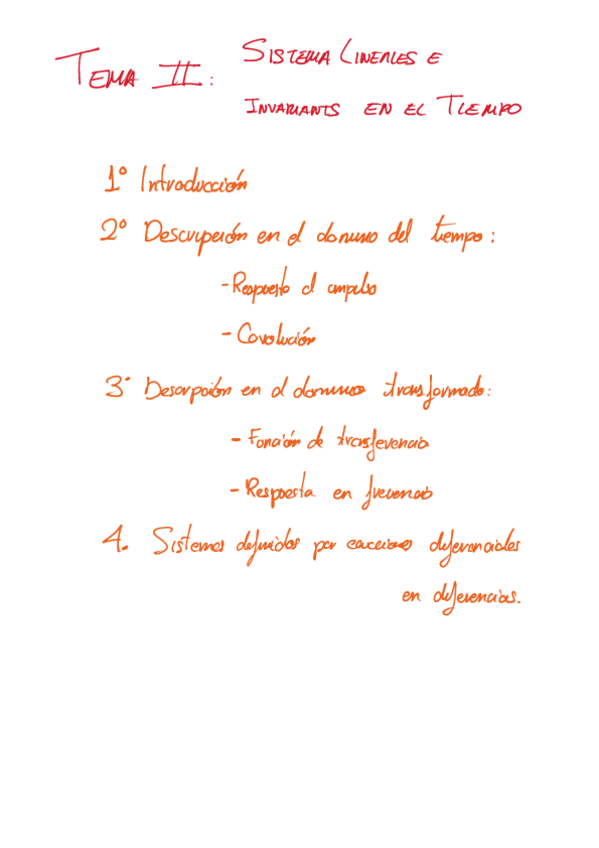 TEMA II:
SISTEMA LINEALES E
INVARIANTS EN EL TIEMPO
1º Introducción
2º Descripción en el dominio del tiempo:
- Respuesta al impulso
- Covolución
3º Descripción en el dominio transformado:
- Función de transferencia
- Respuesta en frecuencia
4. Sistemas definidos por ecuaciones diferenciales
en diferencias.